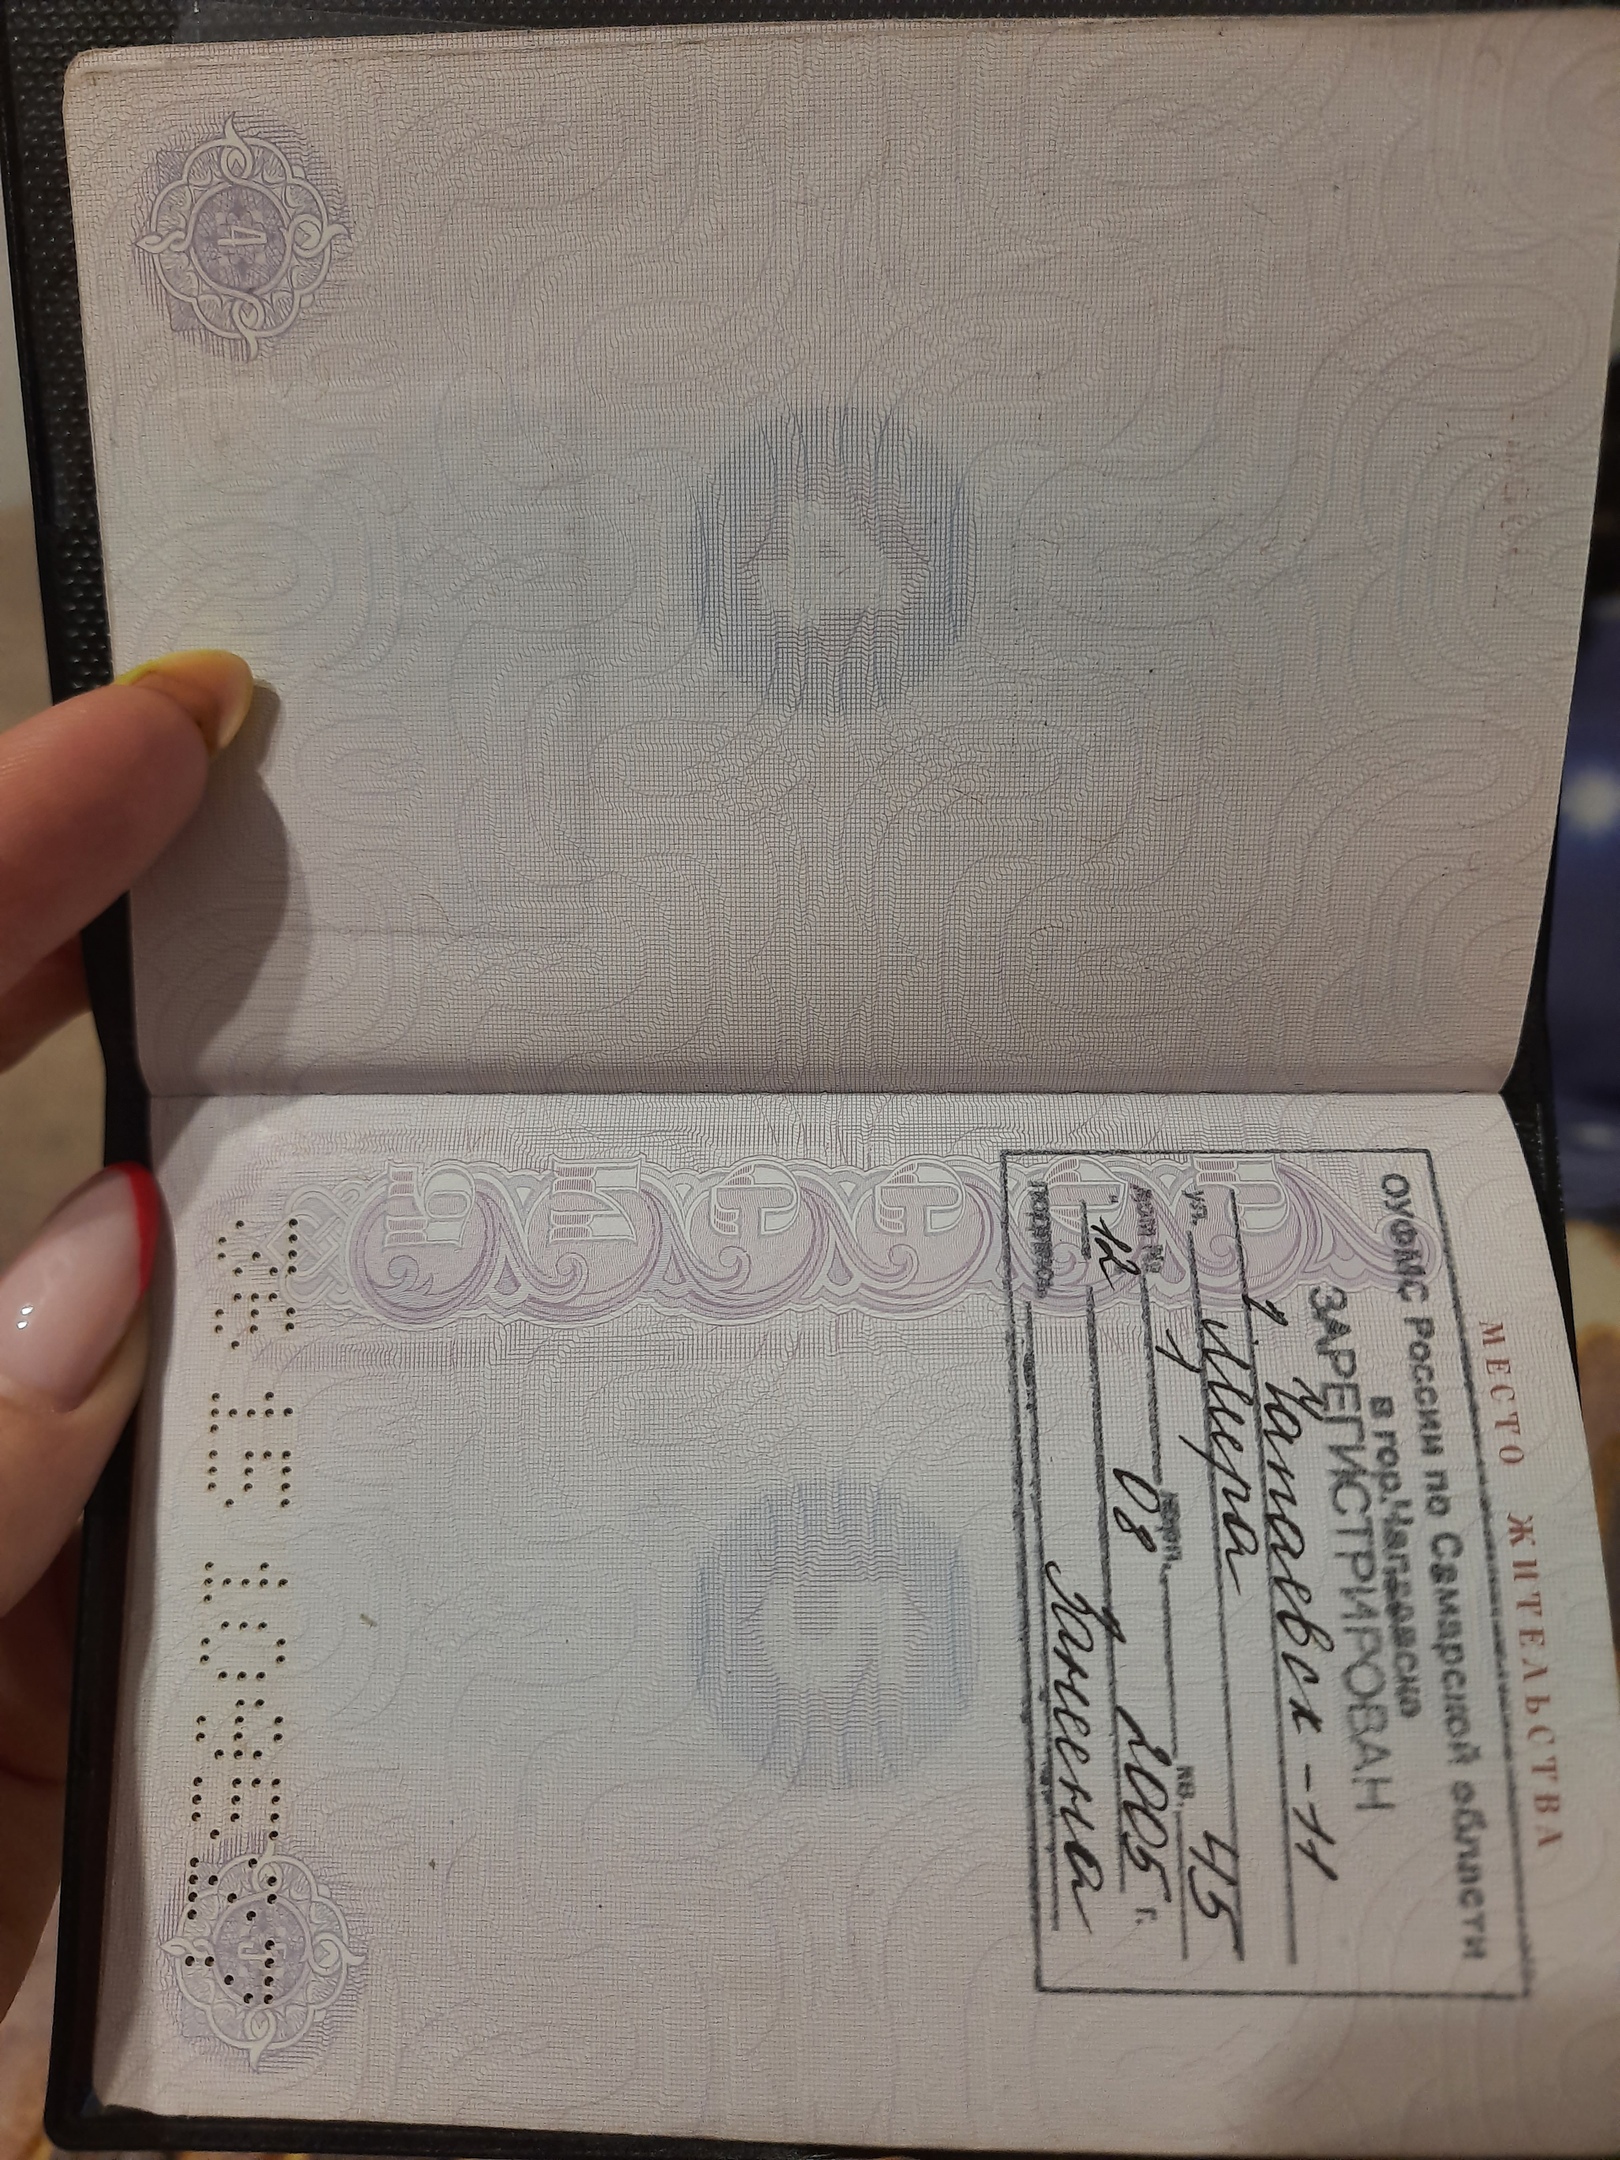 4
МЕСТО ЖИТЕЛЬСТВА
ОУФМС России по Самарской области
в гор.Чапаевске
ЗАРЕГИСТРИРОВАН
г Чапаевск - 11
ул. Мира
дом № 1 корп. кв. 45
"12" 08 2005 г.
подпись
5